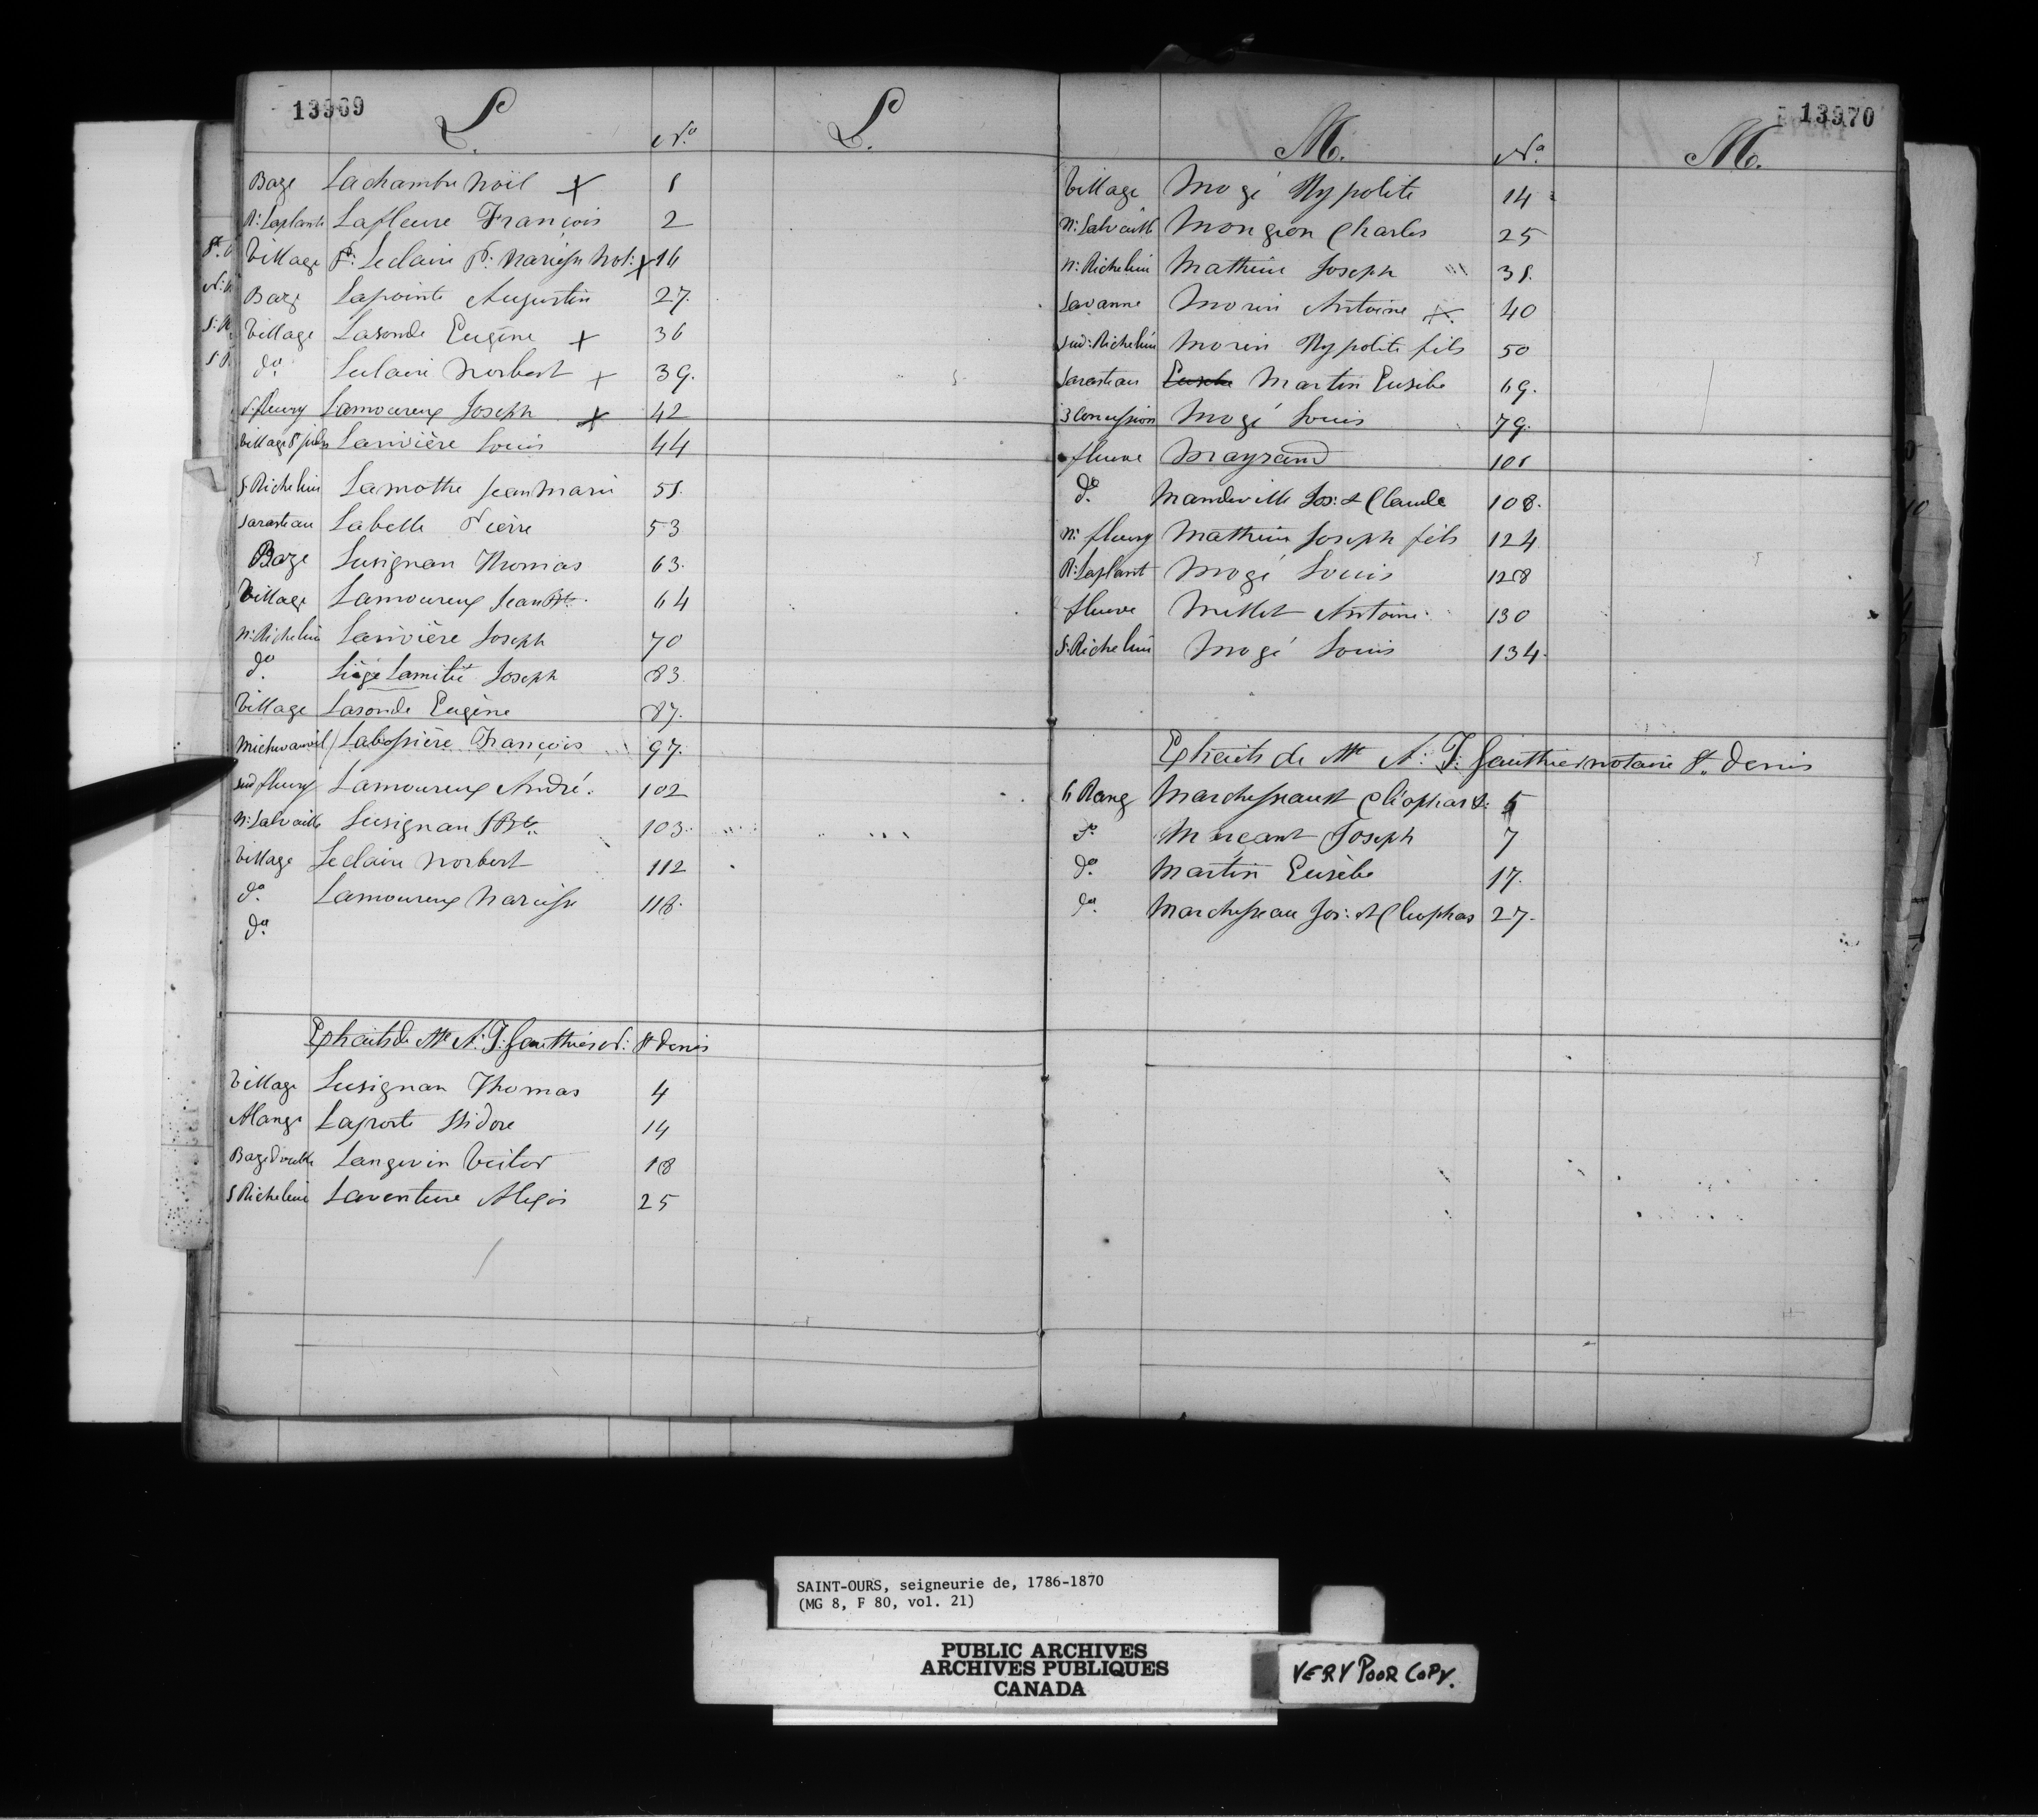 13969
L. No. L.
Baze Lachambre Noël X 1
R: Laplante Lafleure François 2
Village Leclaire Narcisse Not: X 16
Baze Lapointe Augustin 27.
Village Lasonde Eugène X 36
do. Leclaire Norbert X 39.
S. fleury Lamoureux Joseph X 42
Village St Larivière Louis 44
S Richelieu Lamothe Jean Marie 51.
Sarasteau Labelle Pierre 53
Baze Lusignan Thomas 63.
Village Lamoureux Jean Bte. 64
N: Richelieu Larivière Joseph 70
do. Liégé Lamitié Joseph 83
Village Lasonde Eugène 87.
Labossière François 97.
sud fleury Lamoureux André. 102
N: Salvaille Lusignan J Bte. 103.
Village Leclaire Norbert 112
do. Lamoureux Narcisse 118.
do.
Extraits de Mtre A: J: Gauthier N: St Denis
Village Lusignan Thomas 4
Laporte Isidore 14
Baze Langevin Victor 18
S Richelieu Laventure Alexis 25
13970
M. No. M.
Village Mogé Hypolite 14
N: Salvaille Mongeon Charles 25
N: Richelieu Mathieu Joseph 31.
Savanne Morin Antoine X. 40
Sud: Richelieu Morin Hypolite fils 50
Sarasteau Eusebe Martin Eusèbe 69.
3 Concession Mogé Louis 79.
fleuve Mayrand 101
do. Mandeville Jos: & Claude 108.
N: fleury Mathieu Joseph fils 124
R: Laplant Mogé Louis 128
fleuve Millet Antoine 130
S. Richelieu Mogé Louis 134.
Extraits de Mtre A: J: Gauthier notaire St. Denis
6 Rang Marchesseault Cléophas 5
do Joseph 7
do. Martin Eusèbe 17.
do. Marchesseau Jos: & Cleophas 27.
SAINT-OURS, seigneurie de, 1786-1870
(MG 8, F 80, vol. 21)
PUBLIC ARCHIVES
ARCHIVES PUBLIQUES
CANADA
VERY POOR COPY.